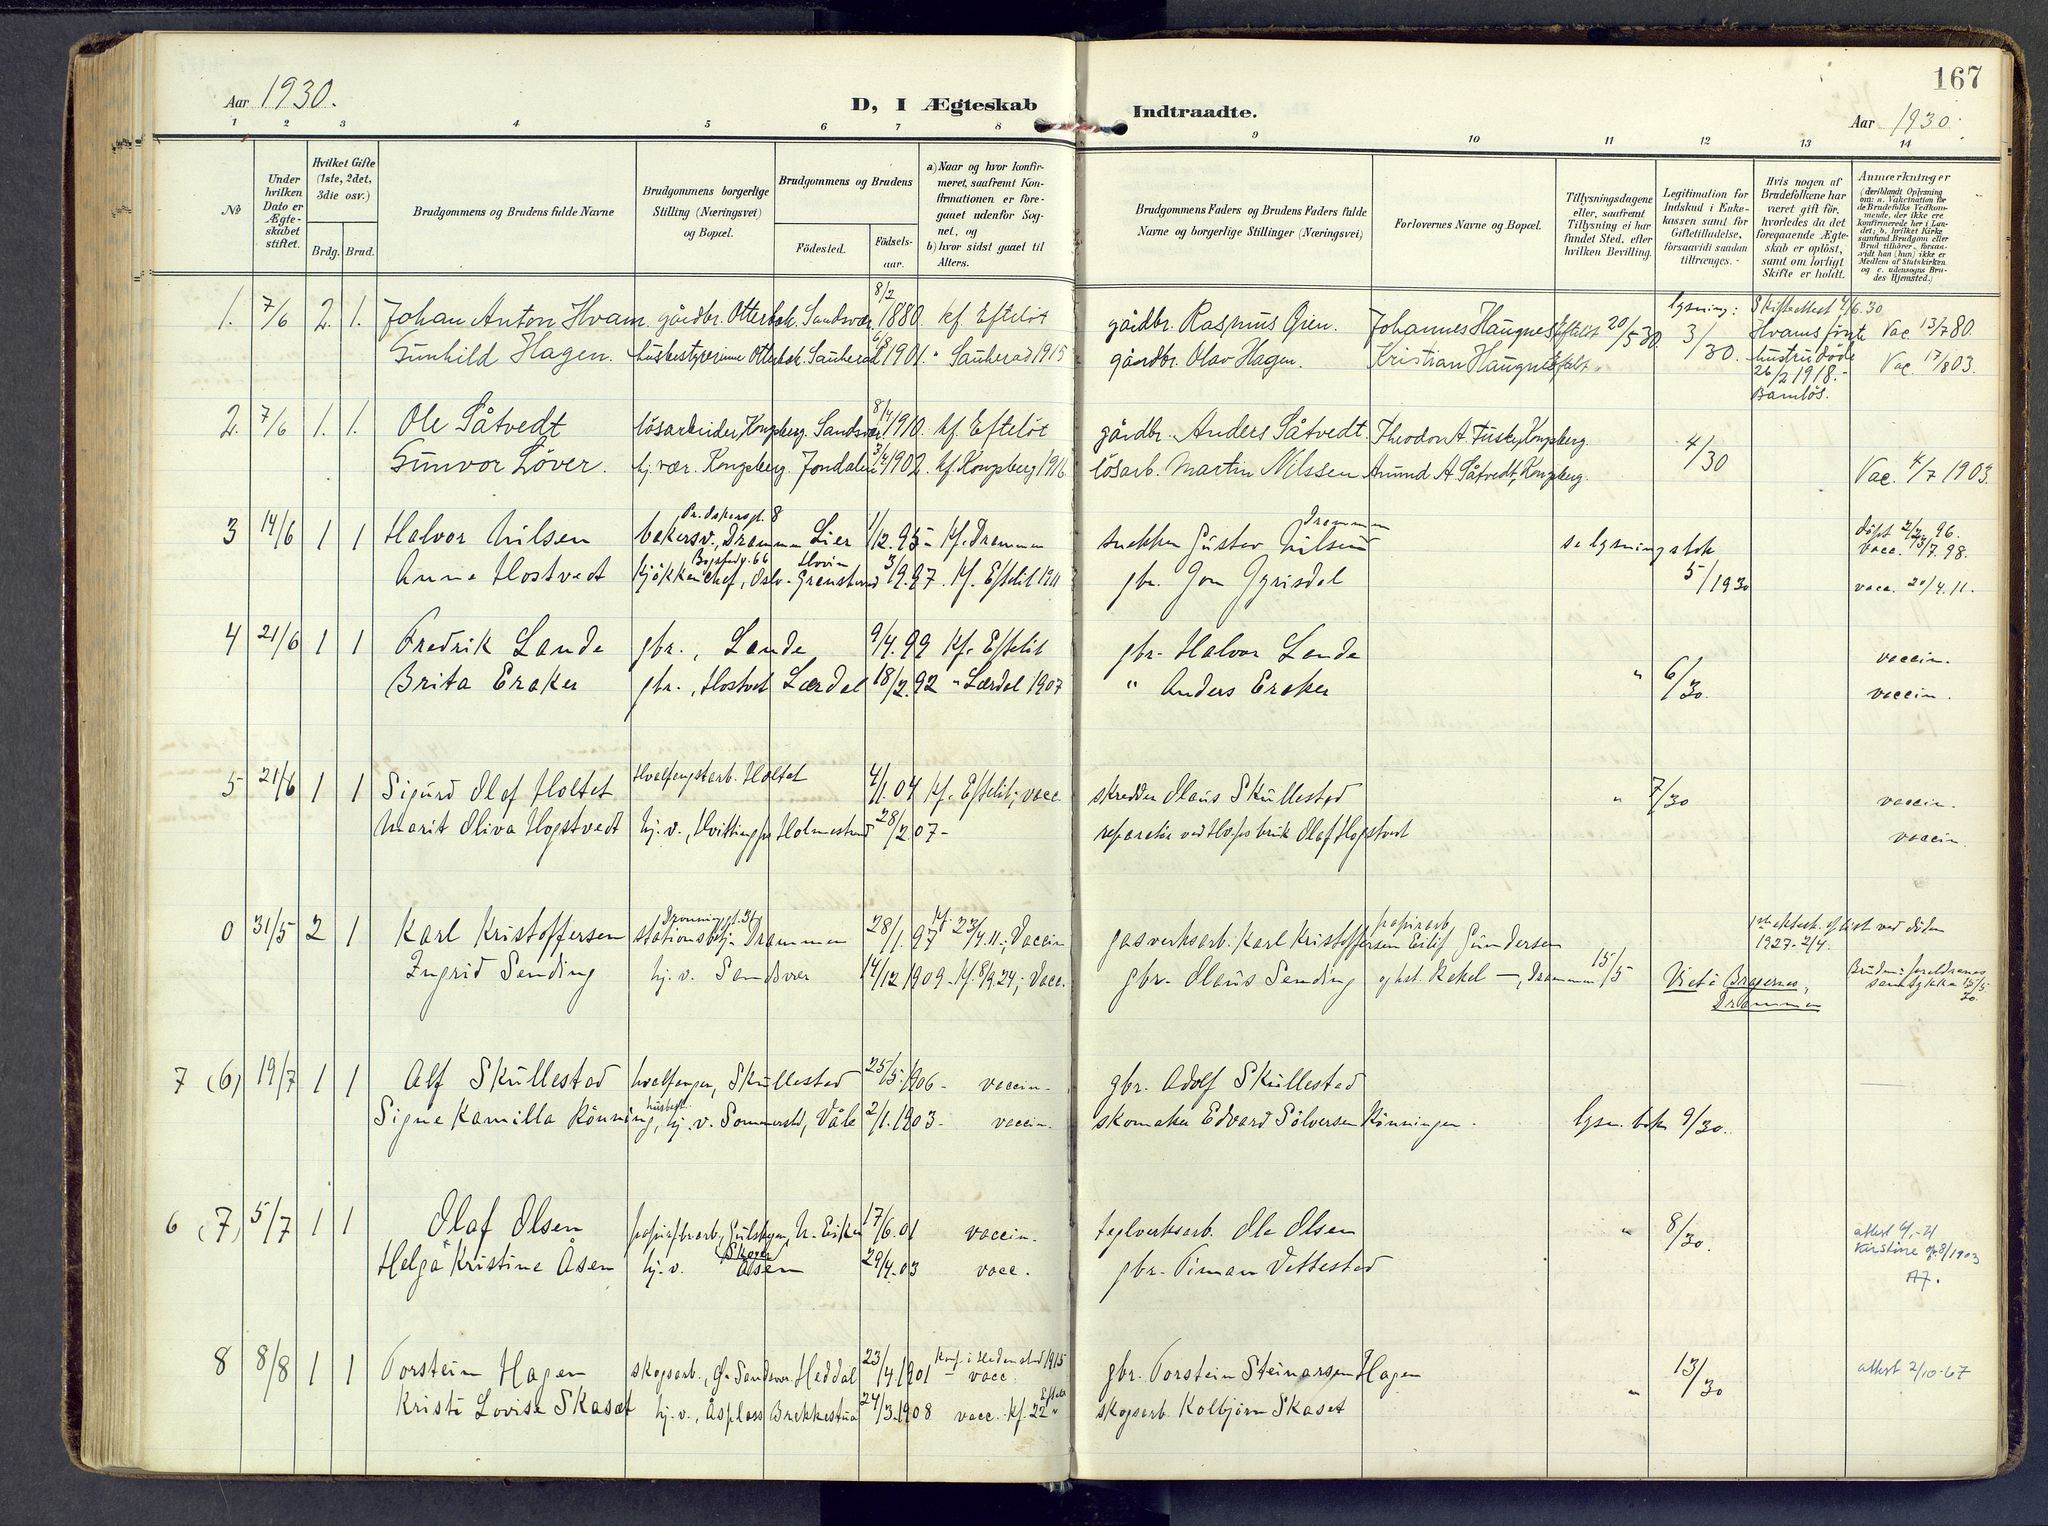 167
Aar 1930.
D, I Ægteskab Indtraadte.
Aar 1930.
1 2 3 4 5 6 7 8 9 10 11 12 13 14
No
Under hvilken Dato er Ægteskabet stiftet.
Hvilket Gifte (1ste, 2det, 3die osv.)
Brdg. Brud.
Brudgommens og Brudens fulde Navne
Brudgommens borgerlige Stilling (Næringsvei) og Bopæl.
Brudgommens og Brudens
Fødested. Fødselsaar.
a) Naar og hvor konfirmeret, saafremt Konfirmationen er foregaaet udenfor Sognet, og b) hvor sidst gaaet til Alters.
Brudgommens Faders og Brudens Faders fulde Navne og borgerlige Stillinger (Næringsvei)
Forlovernes Navne og Bopæl.
Tillysningsdagene eller, saafremt Tillysning ei har fundet Sted, efter hvilken Bevilling.
Legitimation for Indskud i Enkekassen samt for Giftetilladelse, forsaavidt saadan tiltrænges.
Hvis nogen af Brudefolkene har været gift før, hvorledes da det foregaaende Ægteskab er opløst, samt om lovligt Skifte er holdt.
Anmærkninger (deriblandt Oplysning om: a. Vakcination for de Brudefolks Vedkommende, der ikke ere konfirmerede her i Landet; b. hvilket Kirkesamfund Brudgom eller Brud tilhører, forsaavidt han (hun) ikke er Medlem af Statskirken og c. udensogns Brudes Hjemsted.)
1. 7/6 2. 1. Johan Anton Hvam gårdbr. Otterbek. Sandsvær 8/2 1880. kf. Efteløt gårdbr. Rasmus Gien. Johannes Haugnes, Efteløt 20/5 30. lysning: 3/30. Skifteattest 4/6.30 Hvams første hustru døde 26/2 1918.- Barnløs. Vac. 13/7 80.
Gunhild Hagen. husbestyrerinne Otterbek. Sauherad 6/8 1901. " Sauherad 1915 gårdbr. Olav Hagen. Kristian Haugnes, Efteløt. Vac. 17/8 03.
2. 7/6 1. 1. Ole Såtvedt løsarbeider, Kongsberg. Sandsvær 8/4 1910. kf. Efteløt gårdbr. Anders Såtvedt. Theodor A. Kongsberg 4/30
Gunvor Løver. hj. vær. Kongsberg. Jondalen 3/4 1902. kf. Kongsberg 1916 løsarb. Martin Nilssen Amund A. Såtvedt, Kongsberg. Vac. 4/7 1903.
3 14/6 1 1 Halvor Nilsen bakersv., Drammen Lier 1/12.95- kf. Drammen snekker Gustav Nilsen Drammen se lysningsbok 5/1930 døpt 2/2 96. vacc. 13/7.98.
Anne Hostvedt kjøkkenchef, Oslo Bogstadv. 66 Hovin Gransherad 3/9.97. kf. Efteløt 1911 gbr. Jon Gyrisdal vacc. 20/4.11.
4 21/6 1 1 Fredrik Lande gbr., Lande 9/4.99 kf. Efteløt gbr. Halvor Lande " 6/30. vaccin.
Brita Eraker gbr., Hostvet Lærdal 18/2.92 " Lærdal 1907 " Anders Eraker vaccin.
5 21/6 1 1 Sigurd Olaf Holtet Hvalfangstarb. Holtet 4/1.04 kf. Efteløt; vacc. skredder Olaus Skullestad " 7/30 vaccin.
Marit Oliva Hopstvedt hj. v., Hvitting Holmestrand 28/2 07- reparatør ved Hofs bruk Olaf Hopstvedt vaccin.
0 31/5 2 1 Karl Kristoffersen stationsbetj. Drammen 28/1.97 kf. 23/4.11.; Vaccin gasverksarb. Karl Kristoffersen papirarb. Eilif Gundersen 1ste ektesk. opløst ved døden 1927-2/4.
Ingrid Sending hj. v. Sandsvær 14/12 1909- kf. 8/9.24; Vacc. gbr. Olaus Sending og hst. Rakel —, Drammen 15/5 Viet i Bragernes, Drammen Brudens foreldrenes samtykke 15/5 30.
7 (6) 19/7 1 1 Alf Skullestad hvalfanger, Skullestad 25/5.1906- vaccin. gbr. Adolf Skullestad
Signe Kamilla Rönning, husbest. hj. v. Sommerstd, Våle 2/1.1903- vaccin. skomaker Edvard Sölversen Rönningen. lysn. bok 9/30.
6 (7) 5/7 1 1 Olaf Olsen papirfbrarb., Gulskogen, N. Eiker 17/6.01 vaccin. teglverksarb. Ole Olsen " 8/30. attest
Helga Kristine Åsen hj. v. Skoven Åsen 29/4.03 vacc. gbr. Timan Vettestad Kirstine 8/1903
8 8/8 1 1 Torstein Hagen skogsarb., Ø. Sandsvær Heddal 23/4 1901 konf. i Hedenstad 1915 - vacc. gbr. Torstein Steinarsen Hagen " 13/30 attest 2/10-67
Kristi Lovise Skaset hj. v., Åsplass Brekkestua 24/3.1908 vacc. kf. 22 Efteløt skogsarb. Kolbjørn Skaset